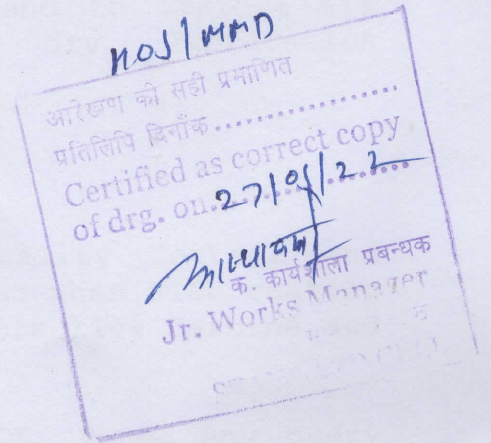 HOS/MMD
आरेखण की सही प्रमाणित
प्रतिलिपि दिनाँक....................
Certified as correct copy
of drg. on..27/05/22......
क. कार्यशाला प्रबन्धक
Jr. Works Manager